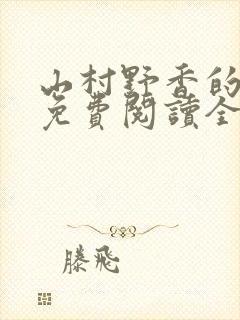 山村野香的
免費閱讀全
滕飛